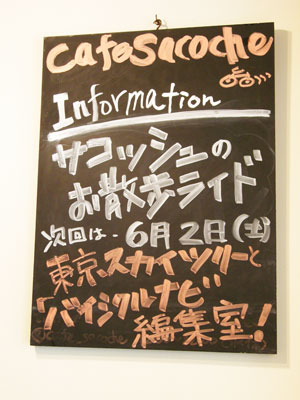 cafeSacoche
Information
サコッシュの
お散歩ライド
次回は、6月2日(土)
東京スカイツリーと
「バイシクルナビ」
編集室!